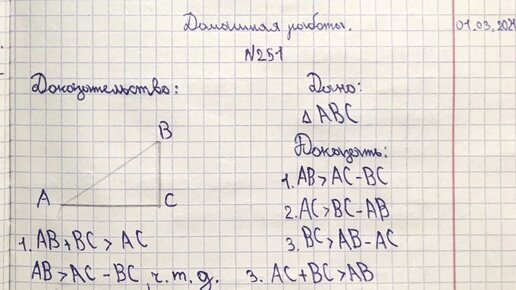 Домашняя работа. 01.03.202
№251
Доказательство:
B
A
C
1. AB + BC > AC
AB > AC - BC, ч.т.д.
Дано:
△ABC
Доказать:
1. AB > AC - BC
2. AC > BC - AB
3. BC > AB - AC
3. AC + BC > AB